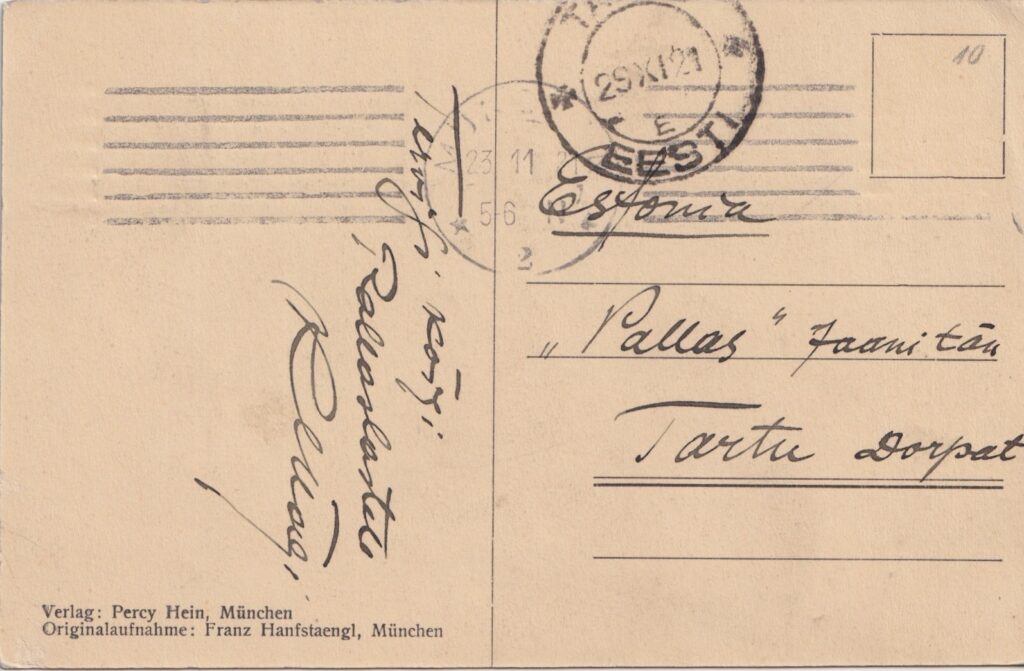 Tervist kõigi
Pallaslastele
K. Mägi.
Verlag: Percy Hein, München
Originalaufnahme: Franz Hanfstaengl, München
23 11
5-6
2
29 XI 21
E
EESTI
10
Estonia
„Pallas“ Jaani tän
Tartu Dorpat